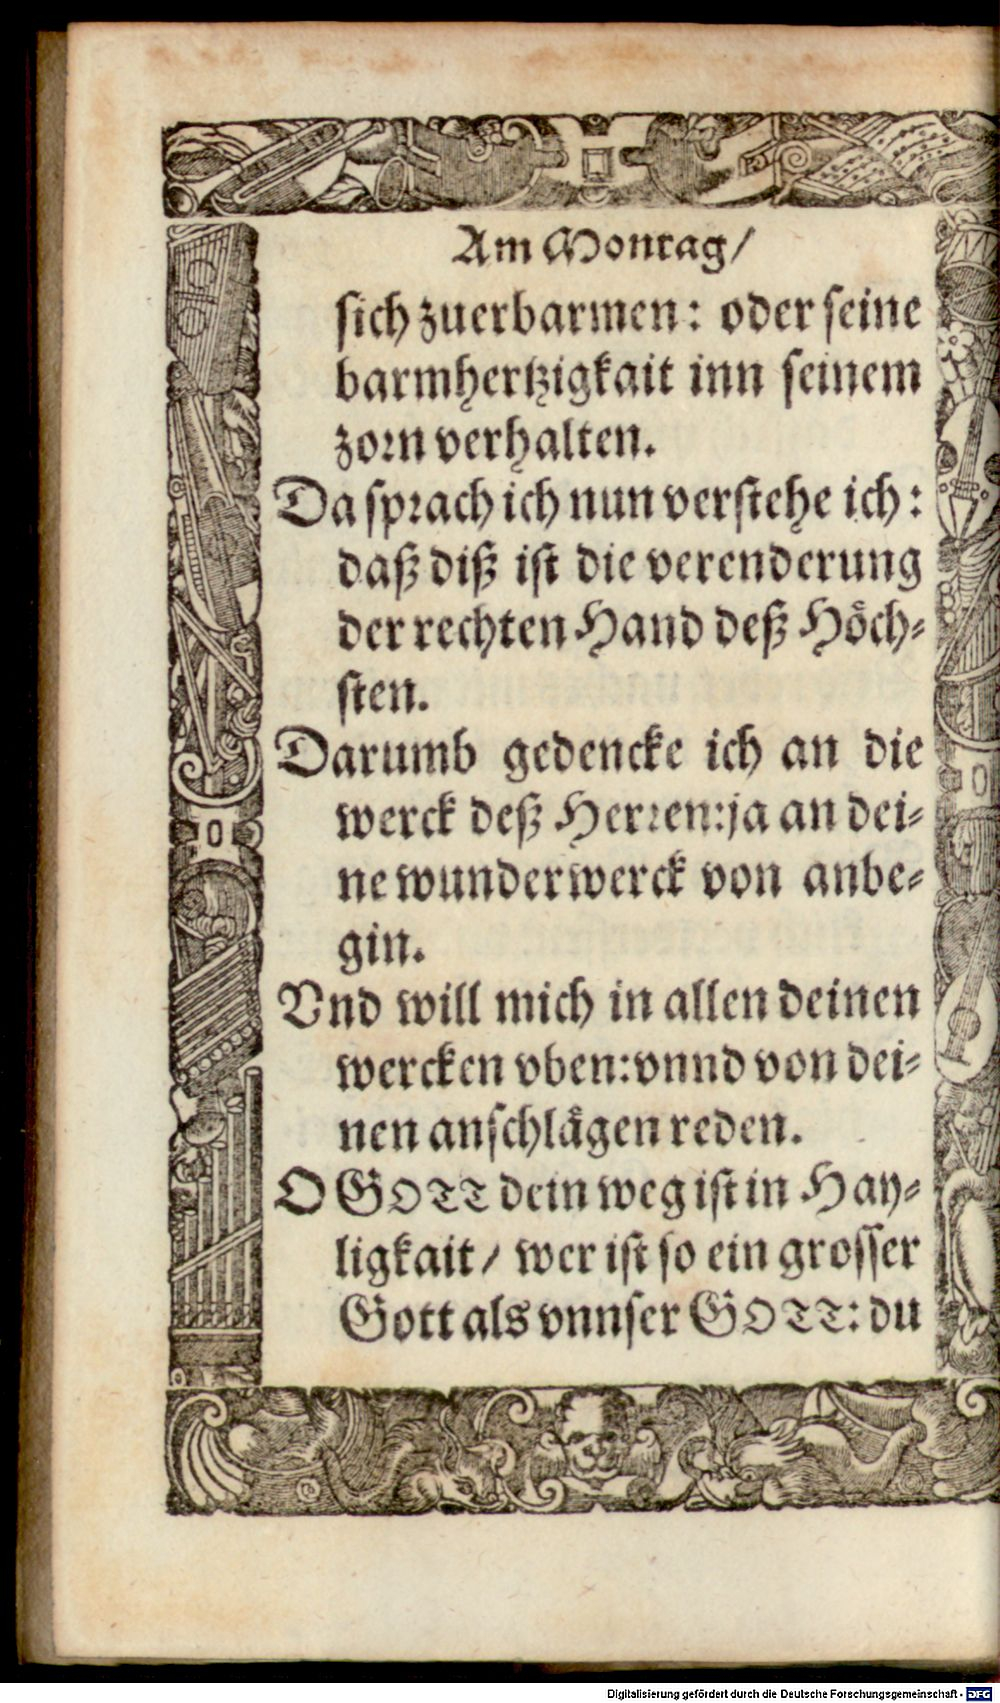 Am Montag/
sich zuerbarmen: oder seine
barmhertzigkait inn seinem
zorn verhalten.
Da sprach ich nun verstehe ich:
daß diß ist die verenderung
der rechten Hand deß Hoͤch⸗
sten.
Darumb gedencke ich an die
werck deß Herren: ja an dei⸗
ne wunderwerck von anbe⸗
gin.
Vnd will mich in allen deinen
wercken vben: vnnd von dei⸗
nen anschlaͤgen reden.
O GOTT dein weg ist in Hay⸗
ligkait/ wer ist so ein grosser
Gott als vnnser GOTT: du
Digitalisierung gefördert durch die Deutsche Forschungsgemeinschaft - DFG